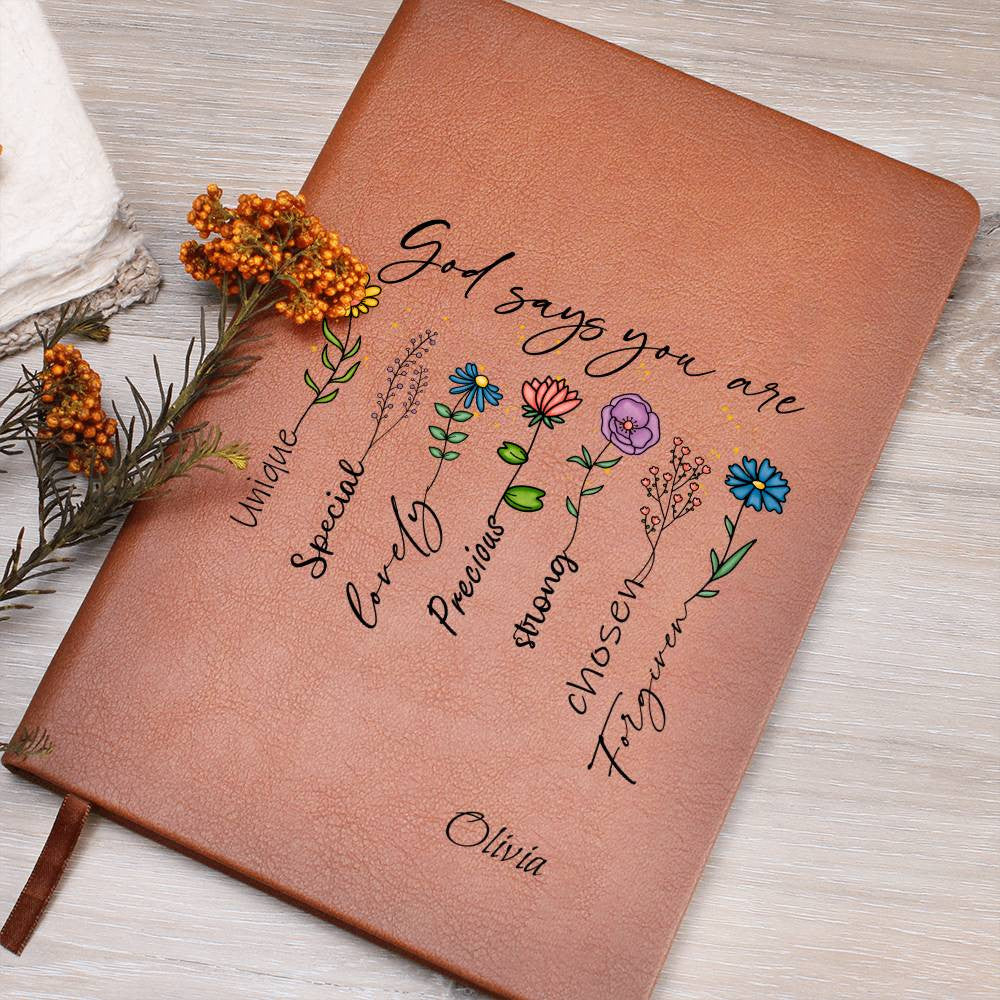 God says you are
Unique
Special
Lovely
Precious
strong
chosen
Forgiven
Olivia